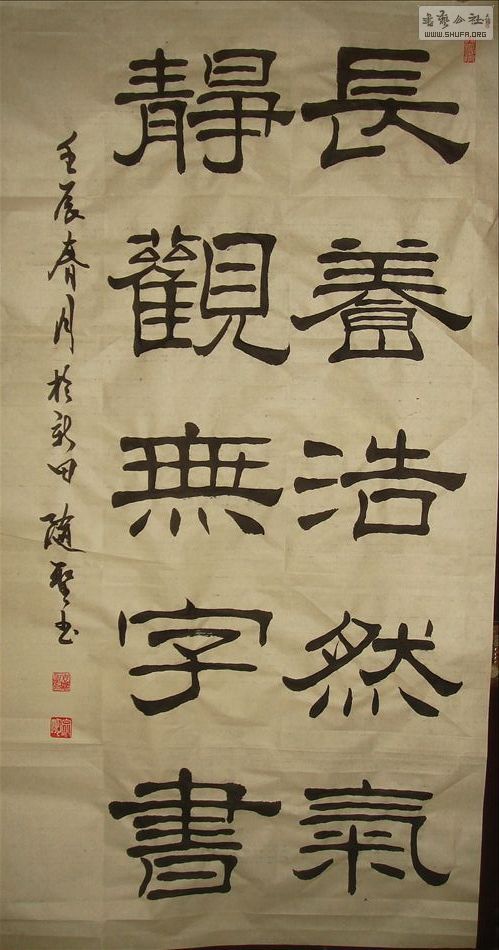 長養浩然氣
靜觀無字書
壬辰春月於新田隨聖書
書藝公社
WWW.SHUFA.ORG